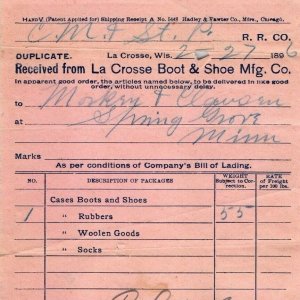 HARDY (Patent Applied for) Shipping Receipt A No. 5448 Hadley & Fawver Co., Mfrs., Chicago.
C M & St. P. R. R. CO.
DUPLICATE. La Crosse, Wis. 2-27 1896
Received from La Crosse Boot & Shoe Mfg. Co.
In apparent good order, the articles named below, to be delivered in like good
order, without unnecessary delay.
to Morkry & Clauson
Spring Grove
Minn
Marks
As per conditions of Company's Bill of Lading.
NO. DESCRIPTION OF PACKAGES WEIGHT Subject to Correction. RATE of Freight per 100 lbs.
Cases Boots and Shoes
1 " Rubbers 55
" Woolen Goods
" Socks